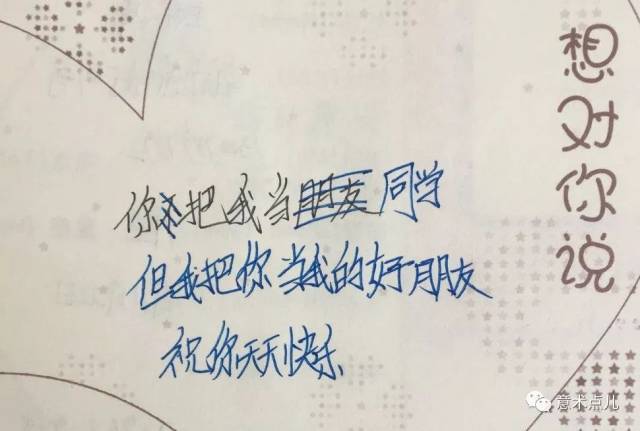 想对你说
你不把我当朋友同学
但我把你当我的好朋友
祝你天天快乐
意术点儿